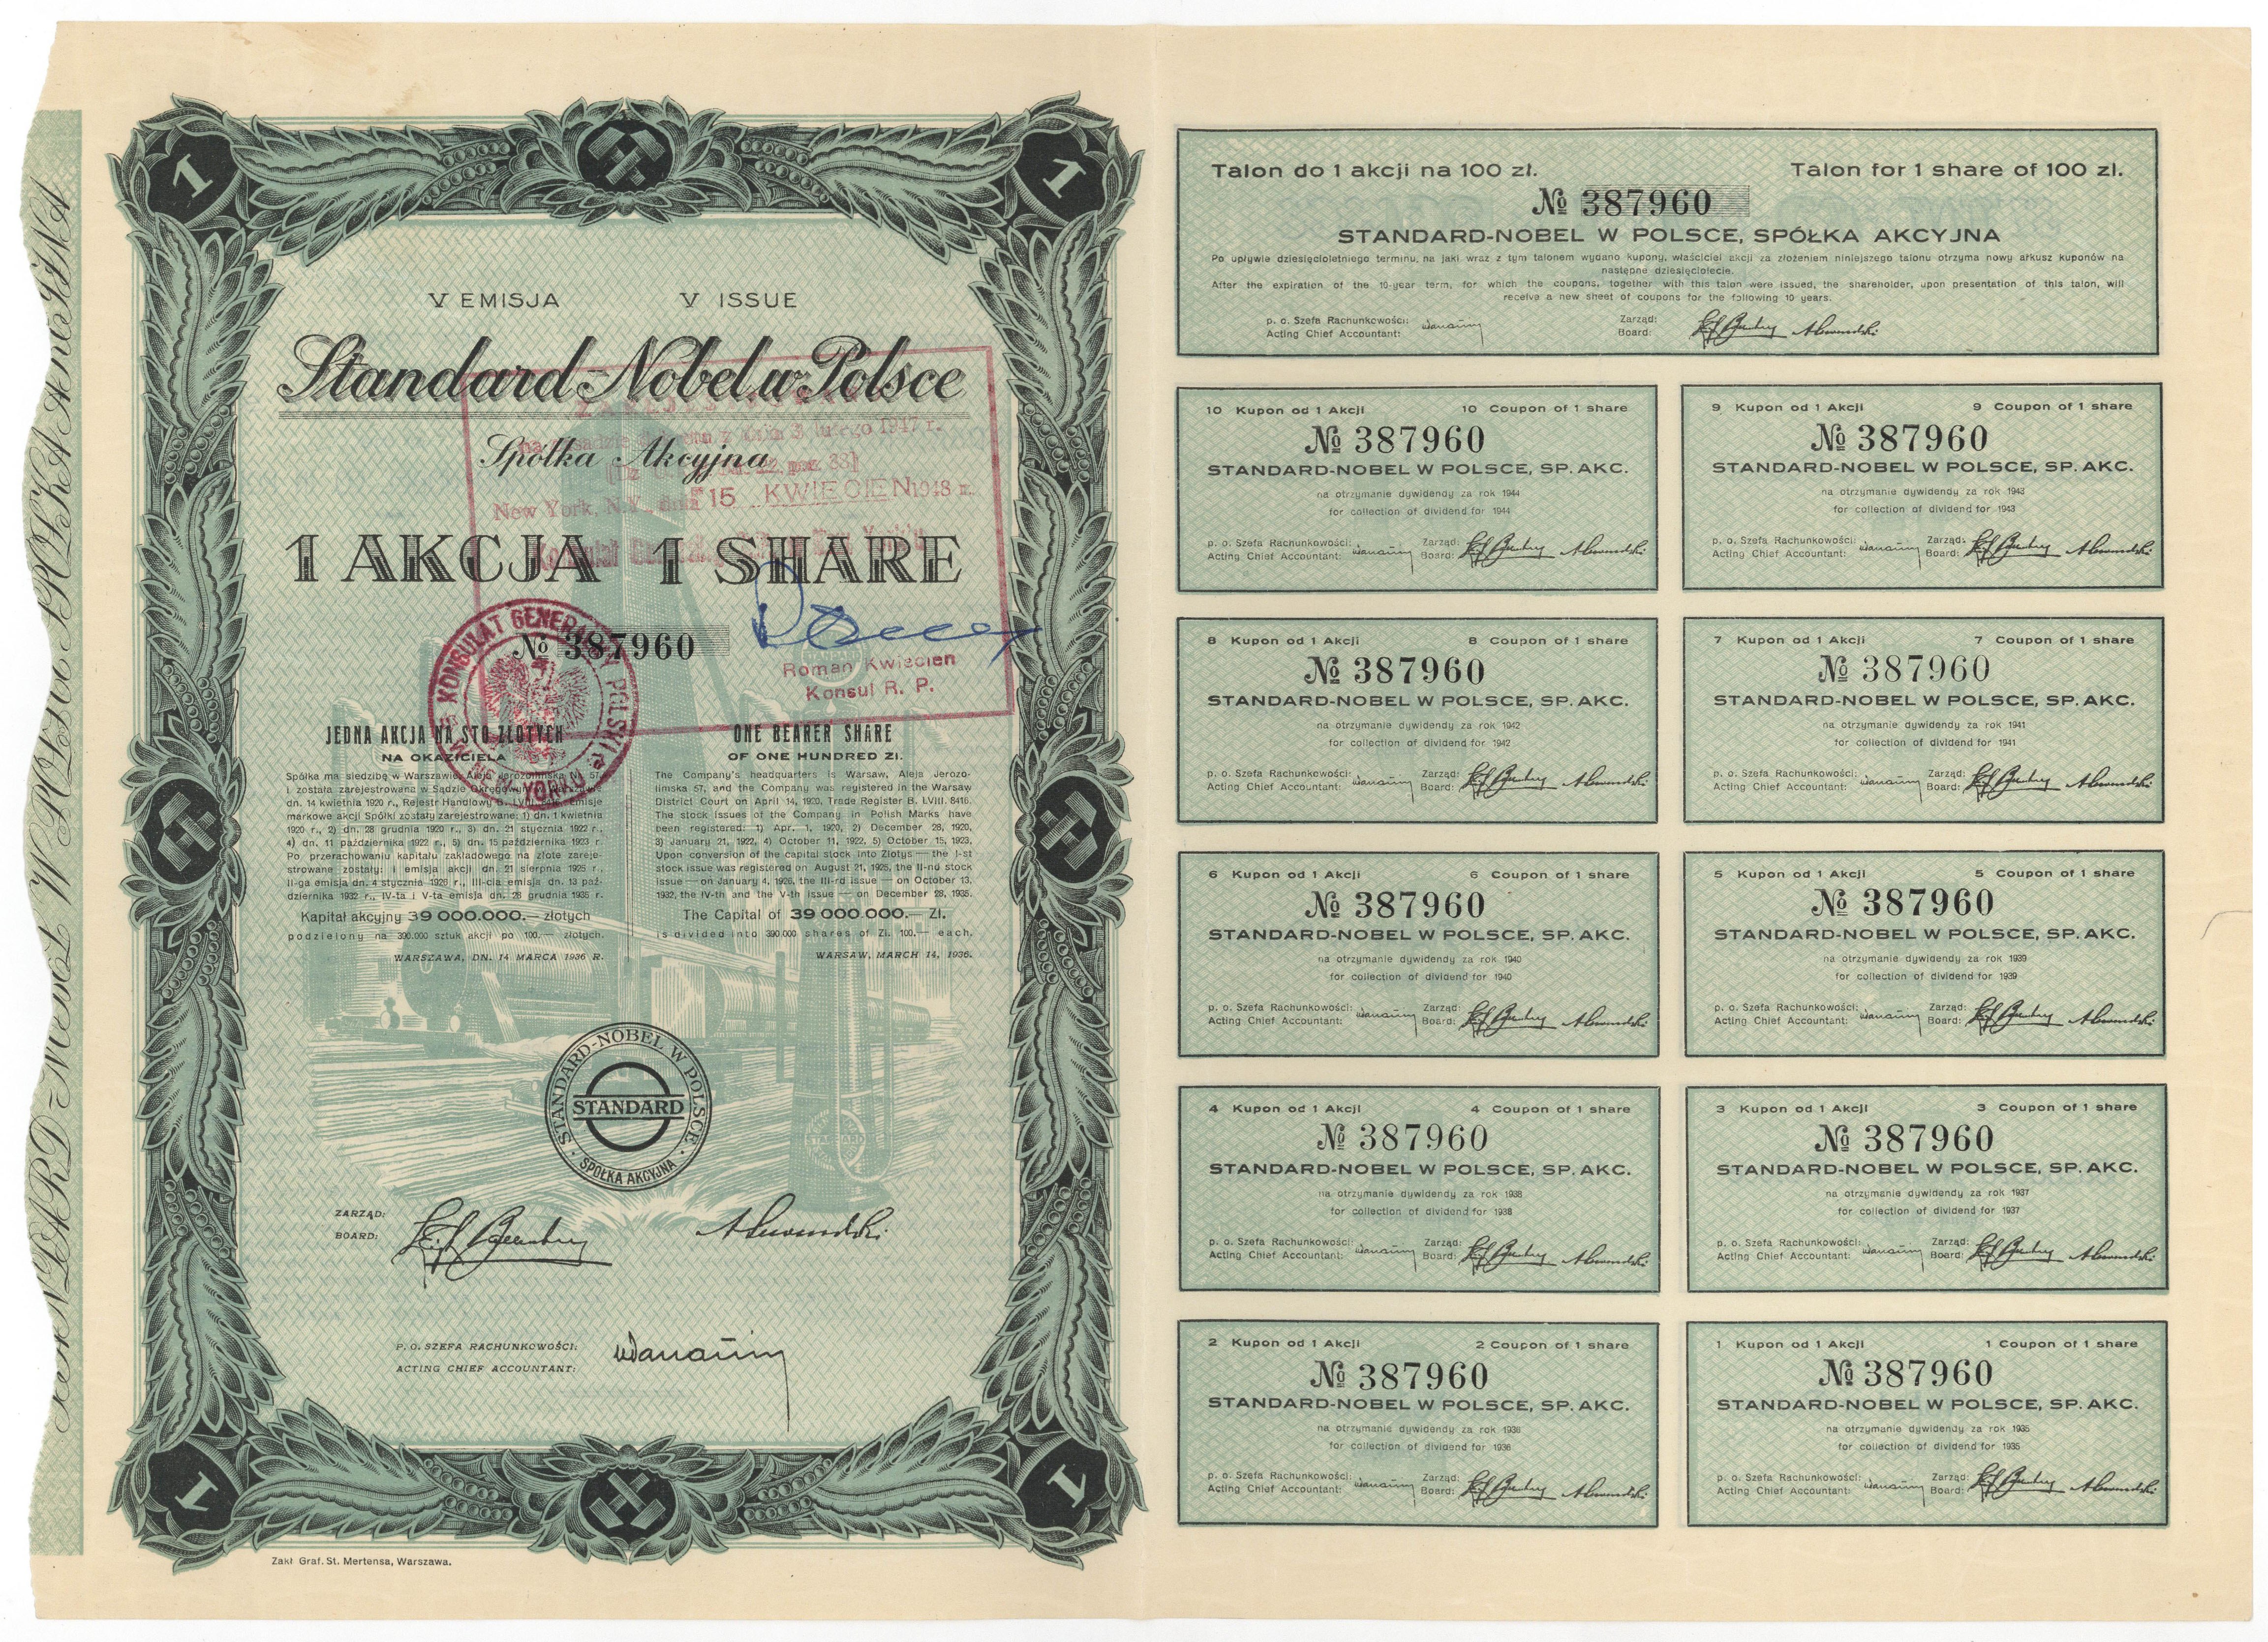 STANDARD-NOBEL W POLSCE SPÓŁKA AKCYJNA
1 1
V EMISJA V ISSUE
Standard-Nobel w Polsce
Spółka Akcyjna
1 AKCJA 1 SHARE
№ 387960
JEDNA AKCJA NA STO ZŁOTYCH
NA OKAZICIELA
Spółka ma siedzibę w Warszawie, Aleja Jerozolimska № 57,
i została zarejestrowana w Sądzie Okręgowym w Warszawie
dn. 14 kwietnia 1920 r., Rejestr Handlowy B. LVIII. 8416. Emisje
markowe akcji Spółki zostały zarejestrowane: 1) dn. 1 kwietnia
1920 r., 2) dn. 28 grudnia 1920 r., 3) dn. 21 stycznia 1922 r.,
4) dn. 11 października 1922 r., 5) dn. 15 października 1923 r.
Po przerachowaniu kapitału zakładowego na złote zareje-
strowane zostały: I emisja akcji dn. 21 sierpnia 1925 r.,
II-ga emisja dn. 4 stycznia 1926 r., III-cia emisja dn. 13 paź-
dziernika 1932 r., IV-ta i V-ta emisja dn. 28 grudnia 1935 r.
Kapitał akcyjny 39 000.000.— złotych
podzielony na 390.000 sztuk akcji po 100.— złotych.
WARSZAWA, DN. 14 MARCA 1936 R.
ONE BEARER SHARE
OF ONE HUNDRED Zł.
The Company's headquarters is Warsaw, Aleja Jerozo-
limska 57, and the Company was registered in the Warsaw
District Court on April 14, 1920, Trade Register B. LVIII. 8416.
The stock issues of the Company in Polish Marks have
been registered: 1) Apr. 1, 1920, 2) December 28, 1920,
3) January 21, 1922, 4) October 11, 1922, 5) October 15, 1923.
Upon conversion of the capital stock into Zlotys — the I-st
stock issue was registered on August 21, 1925, the II-nd stock
issue — on January 4, 1926, the III-rd issue — on October 13,
1932, the IV-th and the V-th issue — on December 28, 1935.
The Capital of 39 000.000.— Zł.
is divided into 390.000 shares of Zł. 100.— each.
WARSAW, MARCH 14, 1936.
z dnia 3 lutego 1947 r.
New York, N.Y., dnia 15 KWIECIEN 1948 r.
Roman Kwiecien
Konsul R. P.
KONSULAT GENERALNY POLSKI
STANDARD-NOBEL W POLSCE
STANDARD
SPÓŁKA AKCYJNA
ZARZĄD:
BOARD:
P. O. SZEFA RACHUNKOWOŚCI:
ACTING CHIEF ACCOUNTANT:
1 1
Zakł Graf. St. Mertensa, Warszawa.
Talon do 1 akcji na 100 zł. Talon for 1 share of 100 zl.
№ 387960
STANDARD-NOBEL W POLSCE, SPÓŁKA AKCYJNA
Po upływie dziesięcioletniego terminu, na jaki wraz z tym talonem wydano kupony, właściciel akcji za złożeniem niniejszego talonu otrzyma nowy arkusz kuponów na
następne dziesięciolecie.
After the expiration of the 10-year term, for which the coupons, together with this talon were issued, the shareholder, upon presentation of this talon, will
receive a new sheet of coupons for the following 10 years.
p. o. Szefa Rachunkowości: Zarząd:
Acting Chief Accountant: Board:
10 Kupon od 1 Akcji 10 Coupon of 1 share
№ 387960
STANDARD-NOBEL W POLSCE, SP. AKC.
na otrzymanie dywidendy za rok 1944
for collection of dividend for 1944
p. o. Szefa Rachunkowości: Zarząd:
Acting Chief Accountant: Board:
9 Kupon od 1 Akcji 9 Coupon of 1 share
№ 387960
STANDARD-NOBEL W POLSCE, SP. AKC.
na otrzymanie dywidendy za rok 1943
for collection of dividend for 1943
p. o. Szefa Rachunkowości: Zarząd:
Acting Chief Accountant: Board:
8 Kupon od 1 Akcji 8 Coupon of 1 share
№ 387960
STANDARD-NOBEL W POLSCE, SP. AKC.
na otrzymanie dywidendy za rok 1942
for collection of dividend for 1942
p. o. Szefa Rachunkowości: Zarząd:
Acting Chief Accountant: Board:
7 Kupon od 1 Akcji 7 Coupon of 1 share
№ 387960
STANDARD-NOBEL W POLSCE, SP. AKC.
na otrzymanie dywidendy za rok 1941
for collection of dividend for 1941
p. o. Szefa Rachunkowości: Zarząd:
Acting Chief Accountant: Board:
6 Kupon od 1 Akcji 6 Coupon of 1 share
№ 387960
STANDARD-NOBEL W POLSCE, SP. AKC.
na otrzymanie dywidendy za rok 1940
for collection of dividend for 1940
p. o. Szefa Rachunkowości: Zarząd:
Acting Chief Accountant: Board:
5 Kupon od 1 Akcji 5 Coupon of 1 share
№ 387960
STANDARD-NOBEL W POLSCE, SP. AKC.
na otrzymanie dywidendy za rok 1939
for collection of dividend for 1939
p. o. Szefa Rachunkowości: Zarząd:
Acting Chief Accountant: Board:
4 Kupon od 1 Akcji 4 Coupon of 1 share
№ 387960
STANDARD-NOBEL W POLSCE, SP. AKC.
na otrzymanie dywidendy za rok 1938
for collection of dividend for 1938
p. o. Szefa Rachunkowości: Zarząd:
Acting Chief Accountant: Board:
3 Kupon od 1 Akcji 3 Coupon of 1 share
№ 387960
STANDARD-NOBEL W POLSCE, SP. AKC.
na otrzymanie dywidendy za rok 1937
for collection of dividend for 1937
p. o. Szefa Rachunkowości: Zarząd:
Acting Chief Accountant: Board:
2 Kupon od 1 Akcji 2 Coupon of 1 share
№ 387960
STANDARD-NOBEL W POLSCE, SP. AKC.
na otrzymanie dywidendy za rok 1936
for collection of dividend for 1936
p. o. Szefa Rachunkowości: Zarząd:
Acting Chief Accountant: Board:
1 Kupon od 1 Akcji 1 Coupon of 1 share
№ 387960
STANDARD-NOBEL W POLSCE, SP. AKC.
na otrzymanie dywidendy za rok 1935
for collection of dividend for 1935
p. o. Szefa Rachunkowości: Zarząd:
Acting Chief Accountant: Board: